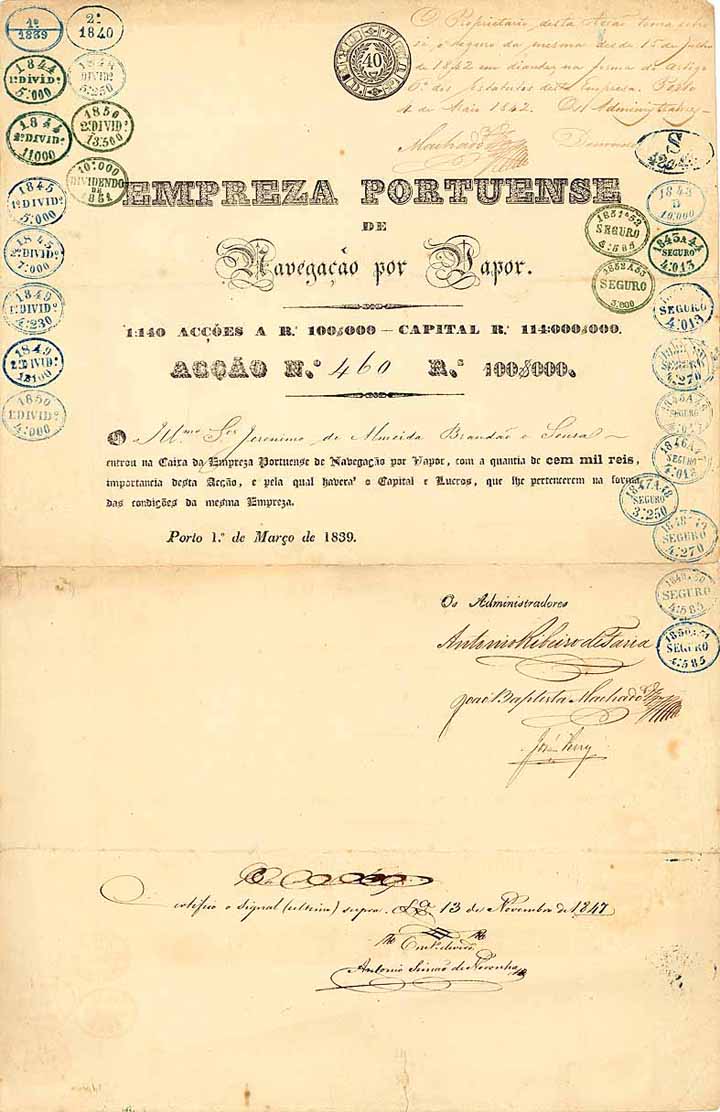 40
O Proprietario desta Acção toma sobre
si o seguro da mesma desde 15 de Julho
de 1842 em diante, na forma do Artigo
6º dos Estatutos desta Empresa. Porto
4 de Maio 1842. Os Administradores
Machado
1º
1839
2º
1840
1844
1º DIVIDº
5:000
DIVIDº
5:250
1844
2º DIVIDº
11000
1850
2º DIVIDº
13:500
10:000
DIVIDENDO
DE
1851
1845
1º DIVIDº
5:000
1845
2º DIVIDº
7:000
1849
1º DIVIDº
4:230
1849
2º DIVIDº
12100
1850
1º DIVIDº
4:000
EMPREZA PORTUENSE
DE
Navegação por Vapor.
1:140 ACÇÕES A R.ˢ 100$000 — CAPITAL R.ˢ 114:000$000.
ACÇÃO N.º 460 R.ˢ 100$000.
O Illmo Snr Jeronimo de Almeida Brandão e Sousa
entrou na Caixa da Empreza Portuense de Navegação por Vapor, com a quantia de cem mil reis,
importancia desta Acção, e pela qual haverá o Capital e Lucros, que lhe pertencerem na forma
das condições da mesma Empreza.
Porto 1.º de Março de 1839.
1843
D
10,000
1851 a 52
SEGURO
4:585
1843 A 44
SEGURO
4:013
1852 A 53
SEGURO
3:600
SEGURO
4:013
4:270
SEGURO
1846 A 47
SEGURO
4:013
1847 A 48
SEGURO
3:250
1848
SEGURO
4:270
SEGURO
4:585
1850 A 51
SEGURO
4:585
Os Administradores
Antonio Ribeiro de Faria
João Baptista Machado
José
Certifico o Signal (ultimo) supra. 13 de Novembro de 1847
Antonio Simão de Noronha